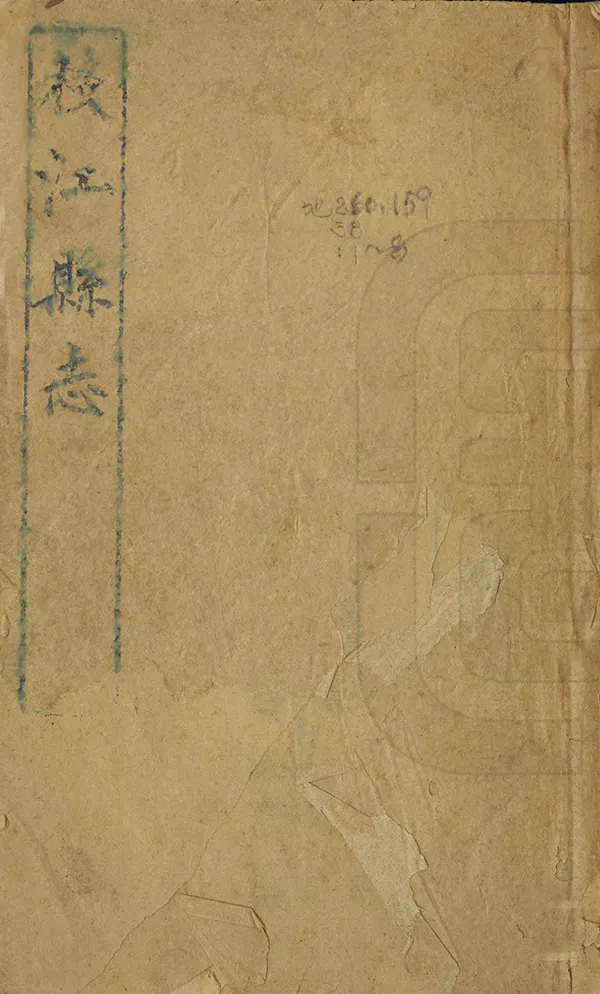 枝江縣志
地260.159
38
:1~8